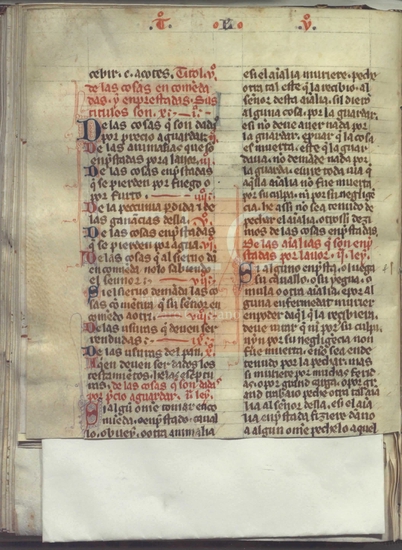 cebir. c. açotes. Titol. v.
de las cosas en comeda
das. y enprestadas. Sus
titulos son. xi.
De las cosas q̃ son dadas
por precio aguardar. i.
De las animalias que so
enp̃stadas pora lauor. ii.
De las cosas enp̃stadas
q̃ se pierden por fuego o
por furto
De la pecunia p̃dida τ de
las ganãcias della. v.
De las cosas enp̃stadas
q̃ se pierden por agua
De las cosas q̃ al sieruo dã
en comeda nolo sabiendo
el sennor
Si el sieruo demãda las co
sas q̃ su sennor en
comedo a otri
De las usuras q̃ deuen ser
rendudas
De las usuras del pan. x.
A quien deuen ser dados los
de las cosas q̃ son dadas
por p̃cio aguardar. i. ley.
Si algũ om̃e tomar en co
meda. o enp̃stado. cauall
lo. o buey. o otra animalia
esi el aĩalia muriere. peche
otra tal a este q̃ la recibio. al
señor desta aĩalia. si le diero
alguna cosa. por la guardar.
esi no deue auer nada por
la guardar. epuar q̃ la cosa
es muerta. este q̃ la guar
daua. no demãde nada por
la guarda. eiure toda uia q̃
aq̃lla aĩalia no fue muerta
por su culpa. ni por su negligẽ
cia. he assi no sea tenudo de
pechar el aĩalia. otrossi dezi
mos de las cosas enp̃stadas
De las aĩalias q̃ son enp̃
stadas por lauor. ii. ley.
Si alguno enp̃sta. o luega
su cauallo. o su yegua. o
mula. o otra aĩalia. epor al
guna enfermedat murier
en poder daq̃l q̃ la recibiera.
deue iurar q̃ ni por su culpa
nin por su negligẽcia non
fue muerta. enõ sea ende
tenudo por la pechar. mas
si muriere por muchas feri
as. o por grand carga. o por gr
and trabaio peche otra tal aĩa
lia al señor della. esi el aĩa
lia enp̃stada fiziere dano
a algun om̃e pechelo aquel